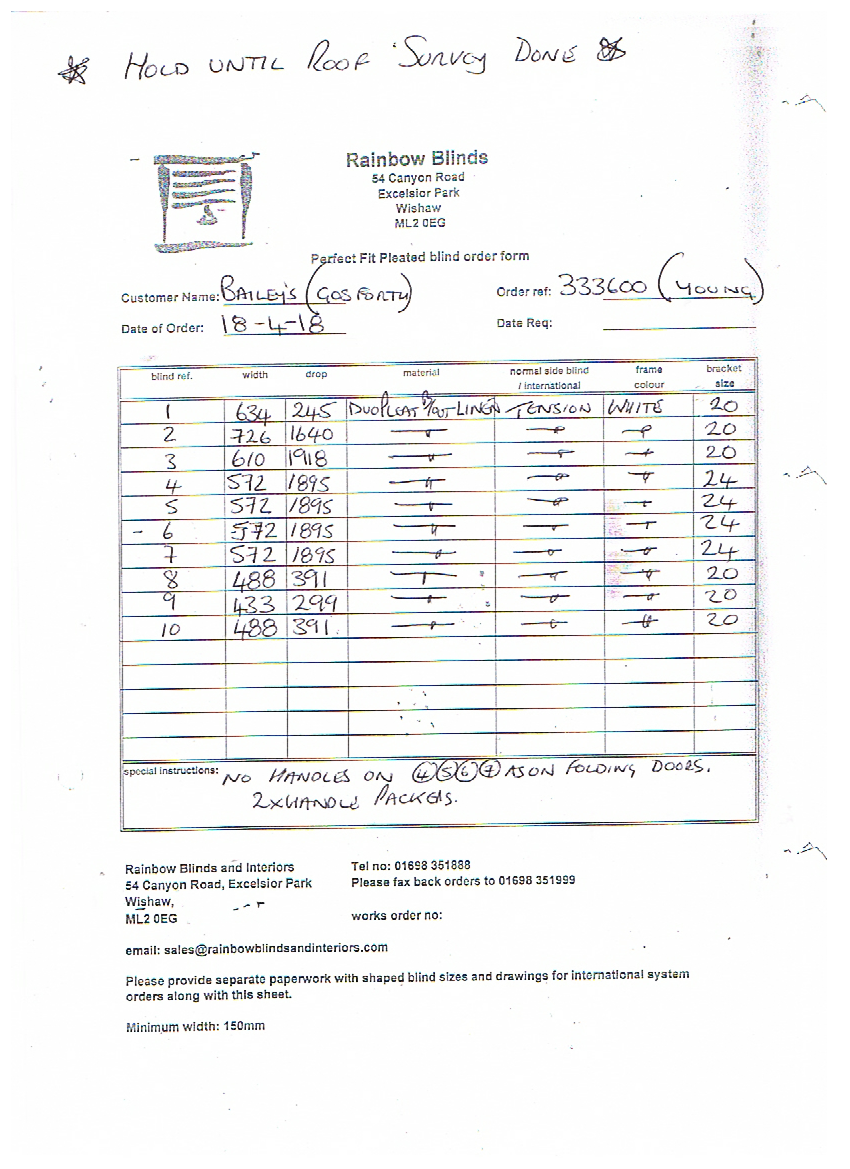 HOLD UNTIL ROOF SURVEY DONE
Rainbow Blinds
54 Canyon Road
Excelsior Park
Wishaw
ML2 0EG
Perfect Fit Pleated blind order form
Customer Name: BAILEY'S (GOSFORTH) Order ref: 333600 (YOUNG)
Date of Order: 18-4-18 Date Req:
blind ref. width drop material normal side blind / international frame colour bracket size
1 634 245 DUOPLEAT B/OUT LINEN TENSION WHITE 20
2 726 1640 " " " 20
3 610 1918 " " " 20
4 572 1895 " " " 24
5 572 1895 " " " 24
6 572 1895 " " " 24
7 572 1895 " " " 24
8 488 391 " " " 20
9 433 299 " " " 20
10 488 391 " " " 20
special instructions: NO HANDLES ON 4 5 6 7 AS ON FOLDING DOORS.
2 x HANDLE PACKERS.
Rainbow Blinds and Interiors Tel no: 01698 351888
54 Canyon Road, Excelsior Park Please fax back orders to 01698 351999
Wishaw,
ML2 0EG works order no:
email: sales@rainbowblindsandinteriors.com
Please provide separate paperwork with shaped blind sizes and drawings for international system
orders along with this sheet.
Minimum width: 150mm